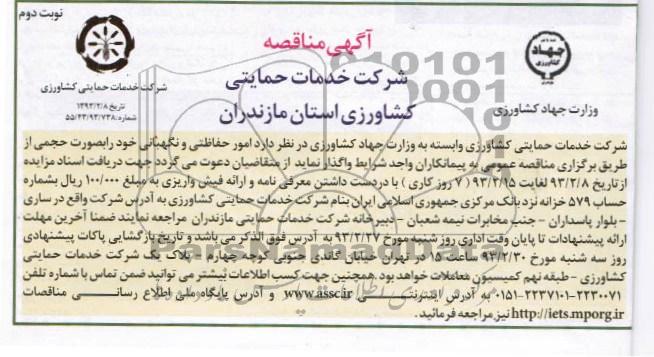 نوبت دوم
آگهی مناقصه
شرکت خدمات حمایتی
کشاورزی استان مازندران
جهاد
کشاورزی
وزارت جهاد کشاورزی
شرکت خدمات حمایتی کشاورزی
تاریخ ۱۳۹۳/۲/۸
شماره: ۵۵/۴۳/۹۳/۷۳۸
شرکت خدمات حمایتی کشاورزی وابسته به وزارت جهاد کشاورزی در نظر دارد امور حفاظتی و نگهبانی خود رابصورت حجمی از
طریق برگزاری مناقصه عمومی به پیمانکاران واجد شرایط واگذار نماید از متقاضیان دعوت می گردد جهت دریافت اسناد مزایده
از تاریخ ۹۳/۲/۸ لغایت ۹۳/۲/۱۵ ( ۷ روز کاری ) با دردست داشتن معرفی نامه و ارائه فیش واریزی به مبلغ ۱۰۰/۰۰۰ ریال بشماره
حساب ۵۷۹ خزانه نزد بانک مرکزی جمهوری اسلامی ایران بنام شرکت خدمات حمایتی کشاورزی به آدرس شرکت واقع در ساری
- بلوار پاسداران - جنب مخابرات نیمه شعبان - دبیرخانه شرکت خدمات حمایتی مازندران مراجعه نمایند ضمنا آخرین مهلت
ارائه پیشنهادات تا پایان وقت اداری روز شنبه مورخ ۹۳/۲/۲۷ به آدرس فوق الذکر می باشد و تاریخ بازگشایی پاکات پیشنهادی
روز سه شنبه مورخ ۹۳/۲/۳۰ ساعت ۱۵ در تهران خیابان قائدی جنوبی کوچه چهارم - پلاک یک شرکت خدمات حمایتی
کشاورزی - طبقه نهم کمیسیون معاملات خواهد بود. همچنین جهت کسب اطلاعات بیشتر می توانید ضمن تماس با شماره تلفن
۰۱۵۱-۲۲۳۷۱۰۱-۲۲۳۰۰۷۱ به آدرس اینترنتی www.assc.ir و آدرس پایگاه ملی اطلاع رسانی مناقصات
http://iets.mporg.ir نیز مراجعه فرمائید.